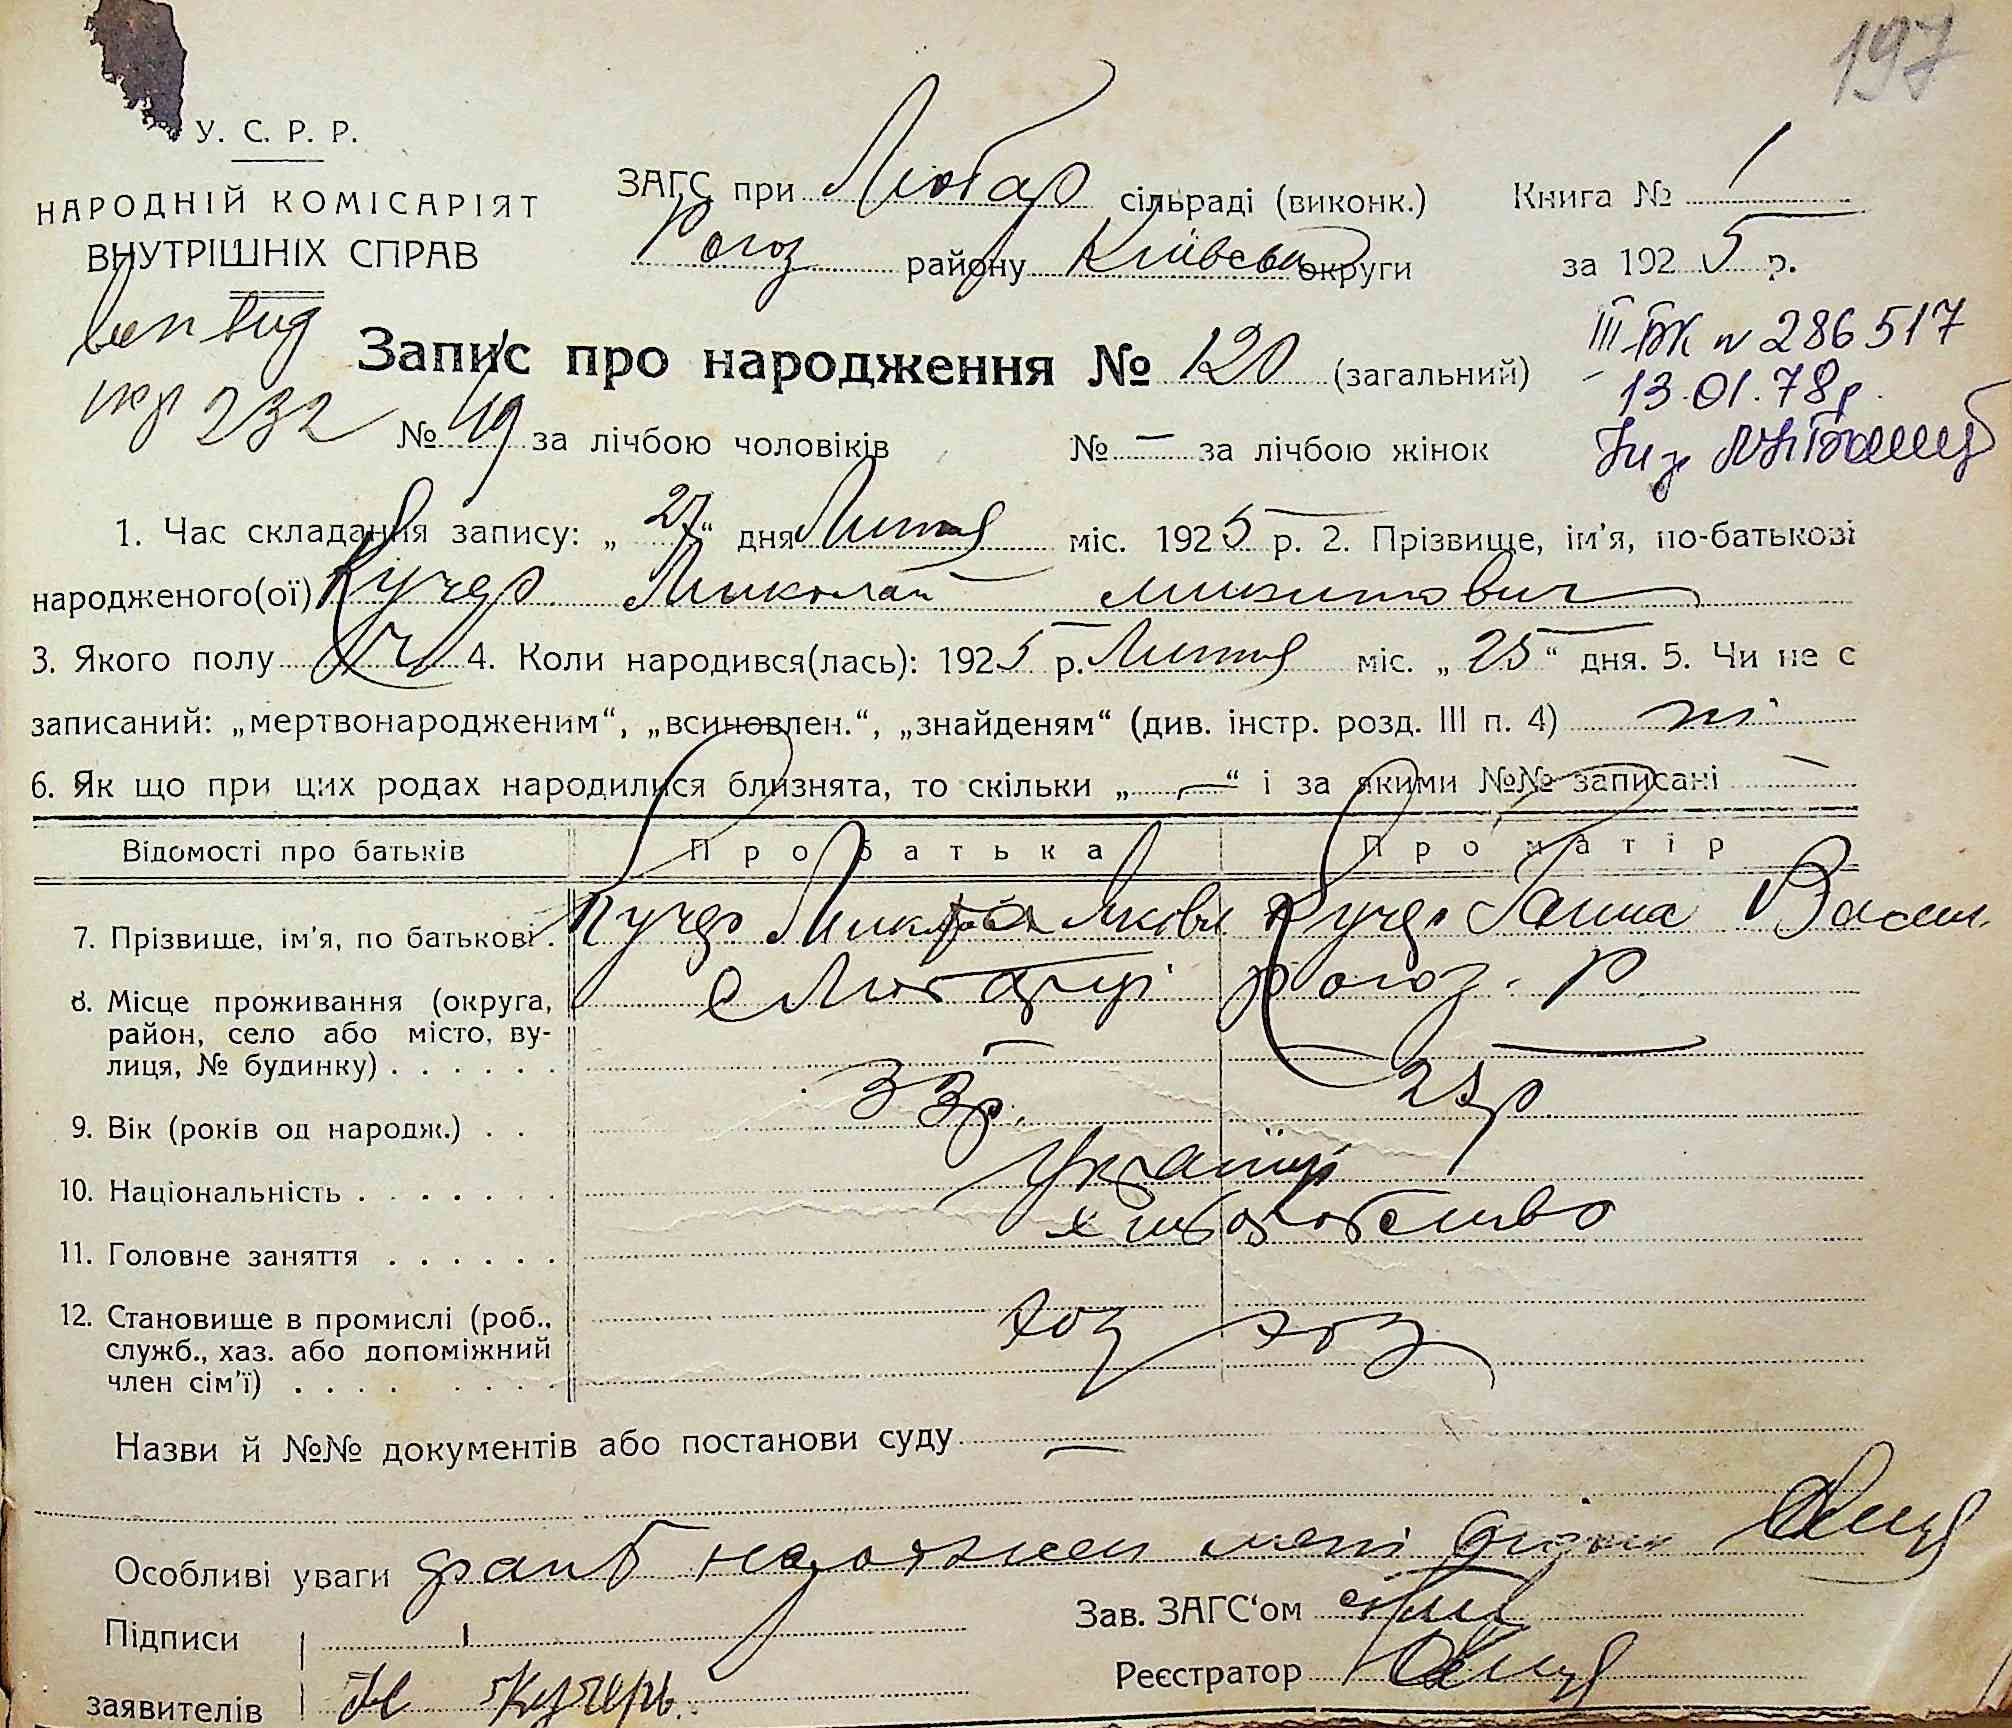 197
У. С. Р. Р.
НАРОДНІЙ КОМІСАРІЯТ
ВНУТРІШНІХ СПРАВ
ЗАГС при Любар сільраді (виконк.)
Рогоз району Київськ округи
Книга № 1
за 1925 р.
Запис про народження № 120 (загальний)
232
III БК № 286517
13.01.78р.
№ 49 за лічбою чоловіків № — за лічбою жінок
1. Час складання запису: „27“ дня Лютня міс. 1925 р. 2. Прізвище, ім'я, по-батькові
народженого(ої) Кучер Миколай Микитович
3. Якого полу ч 4. Коли народився(лась): 1925 р. Лютня міс. „25“ дня. 5. Чи не є
записаний: „мертвонародженим“, „всиновлен.“, „знайденям“ (див. інстр. розд. III п. 4) ні
6. Як що при цих родах народилися близнята, то скільки „—“ і за якими №№ записані —
Відомості про батьків Про батька Про матір
7. Прізвище, ім'я, по батькові. Кучер Микита Яковл Кучер Ганна Васил.
8. Місце проживання (округа,
район, село або місто, ву-
лиця, № будинку) . . . . . .
с Любарці Рогоз. Р
9. Вік (років од народж.) . . 33р. 25р
10. Національність . . . . . . . Україн
11. Головне заняття . . . . . . хліборобство
12. Становище в промислі (роб.,
служб., хаз. або допоміжний
член сім'ї) . . . . . . . .
хоз хоз
Назви й №№ документів або постанови суду —
Особливі уваги факт народжен мені
Зав. ЗАГС'ом
Підписи
Реєстратор
заявителів Н Кучеръ.